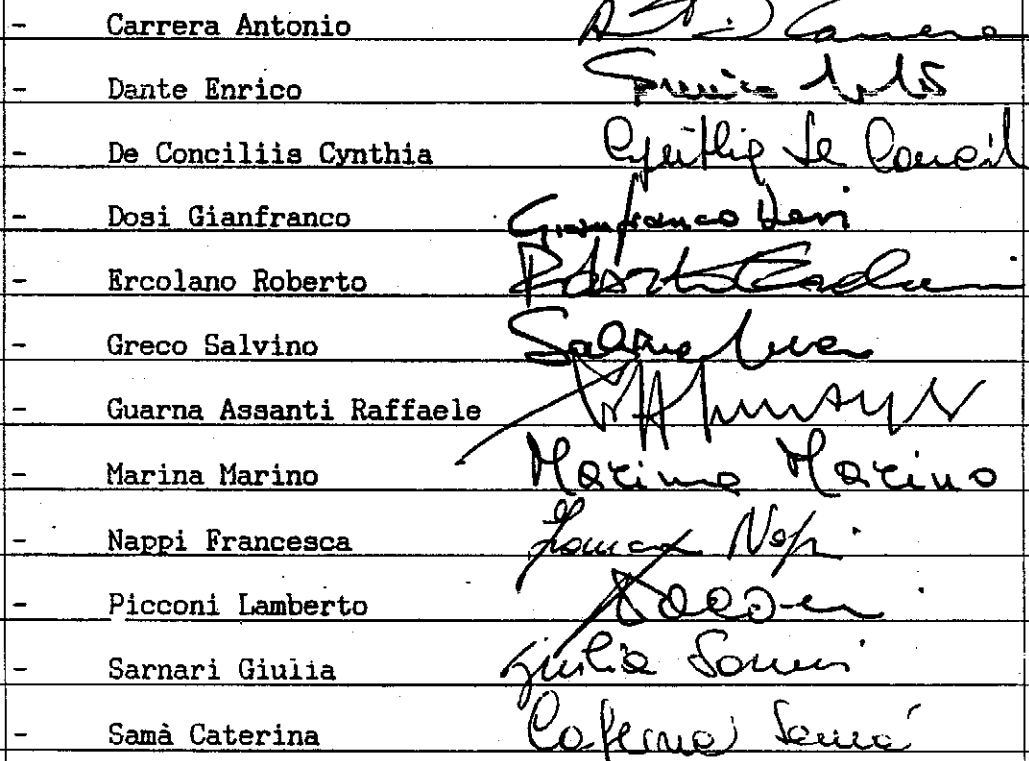 - Carrera Antonio
- Dante Enrico
- De Conciliis Cynthia Cynthia De Concil
- Dosi Gianfranco Gianfranco Dosi
- Ercolano Roberto Roberto
- Greco Salvino Salvino
- Guarna Assanti Raffaele
- Marina Marino Marina Marino
- Nappi Francesca
- Picconi Lamberto
- Sarnari Giulia Giulia
- Samà Caterina Caterina Samà